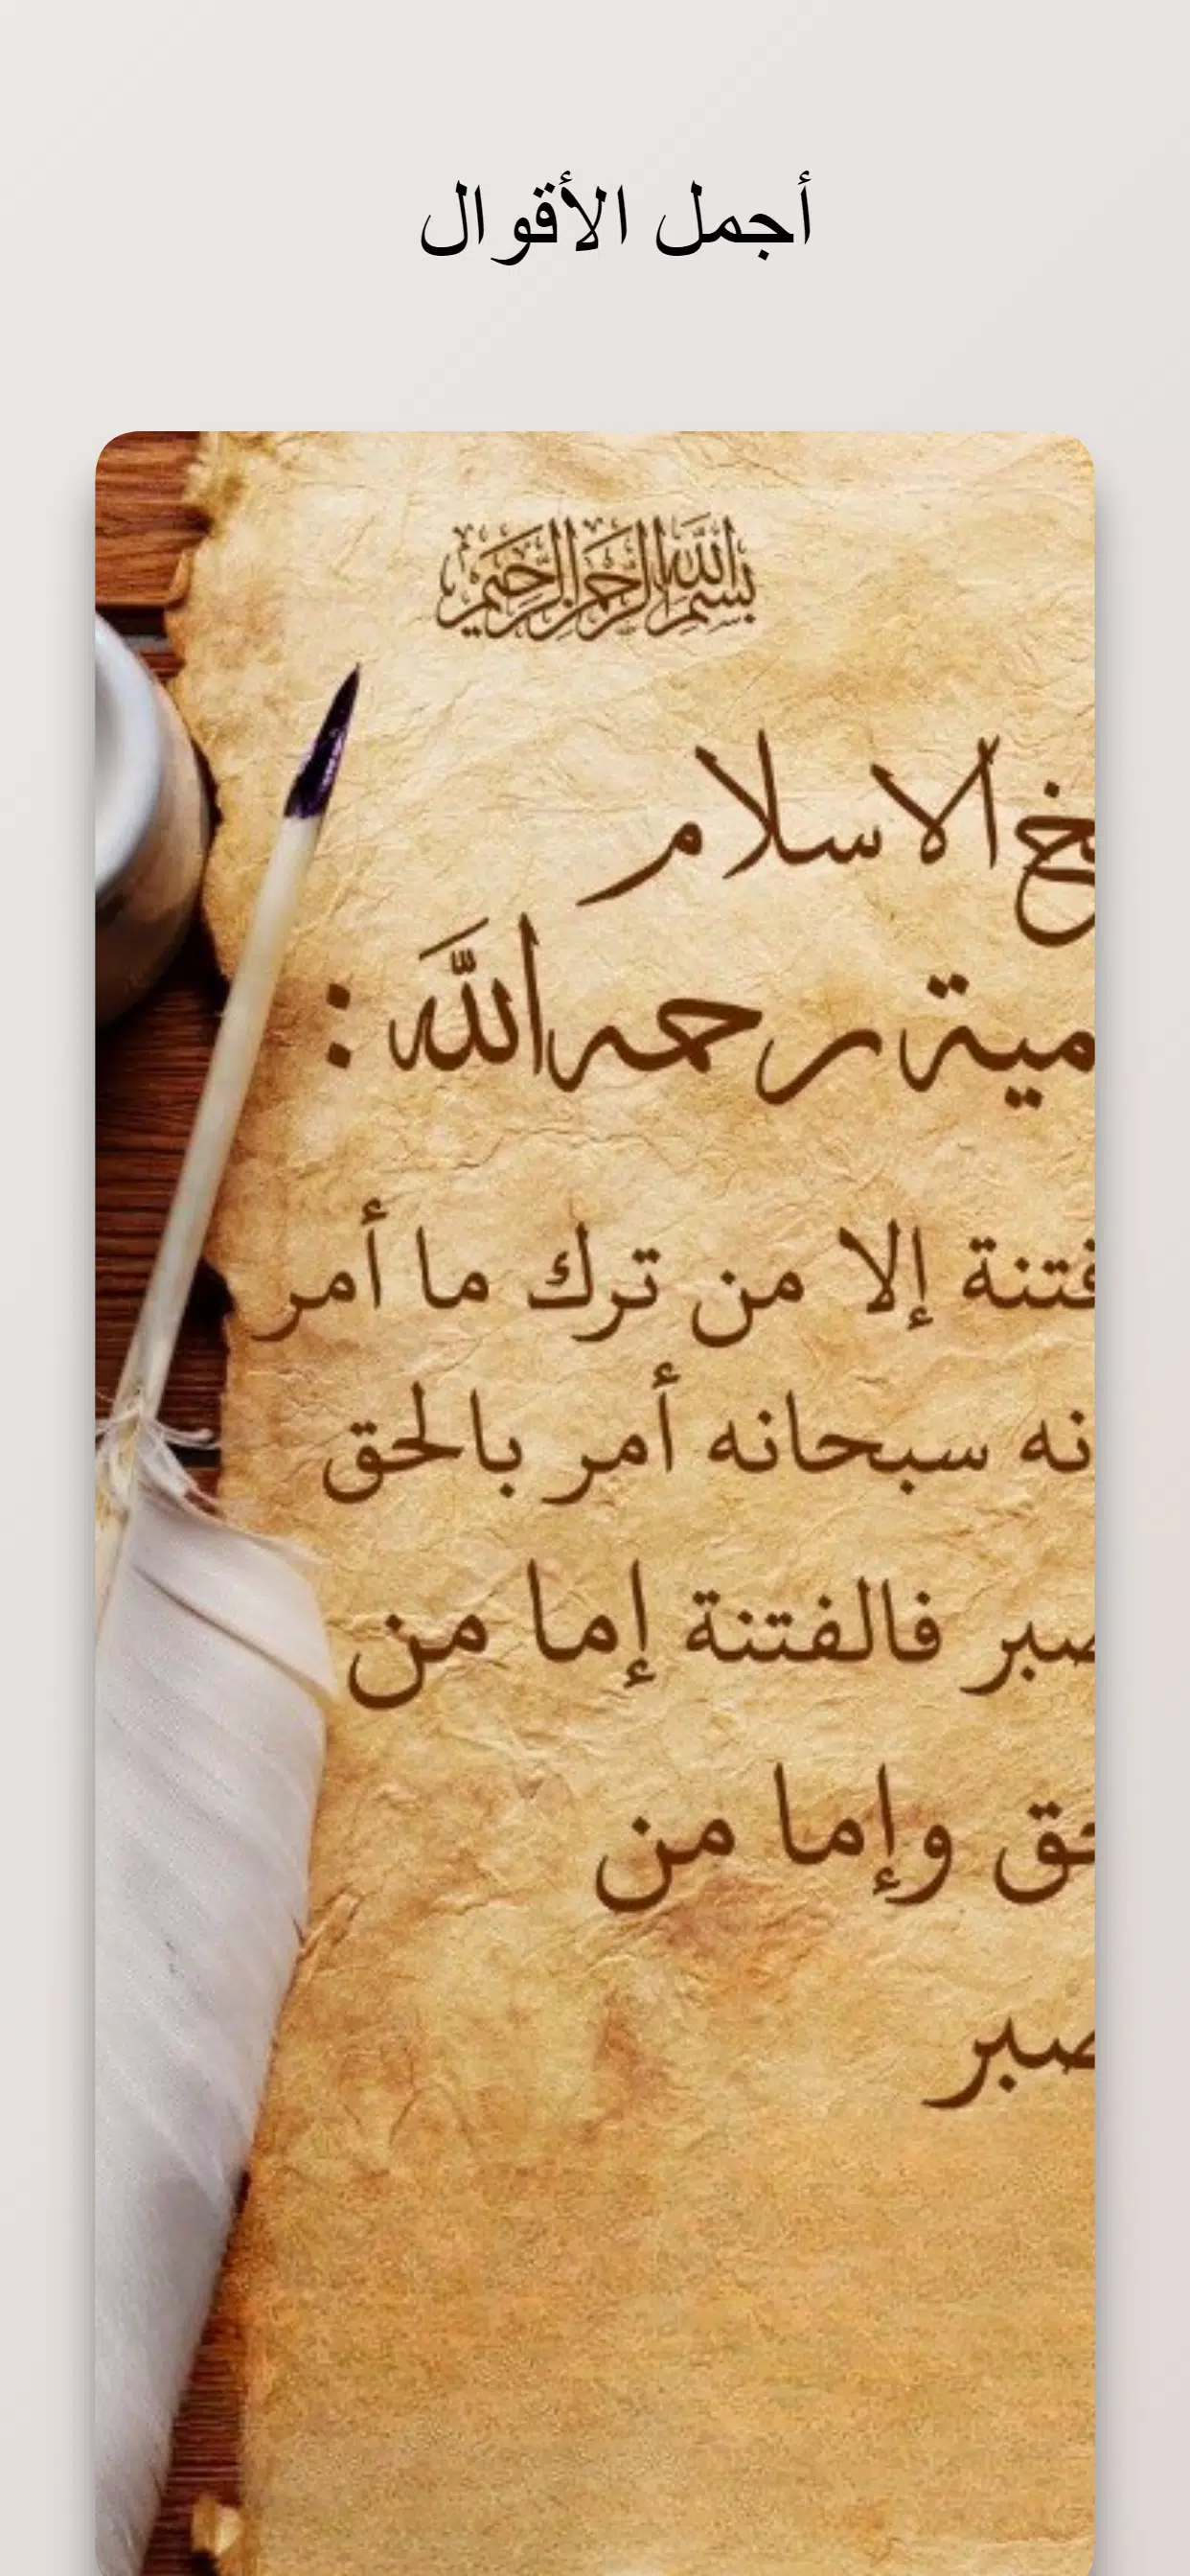 أجمل الأقوال
بسم الله الرحمن الرحيم
الاسلام
رحمه الله :
إلا من ترك ما أمر
سبحانه أمر بالحق
فالفتنة إما من
وإما من